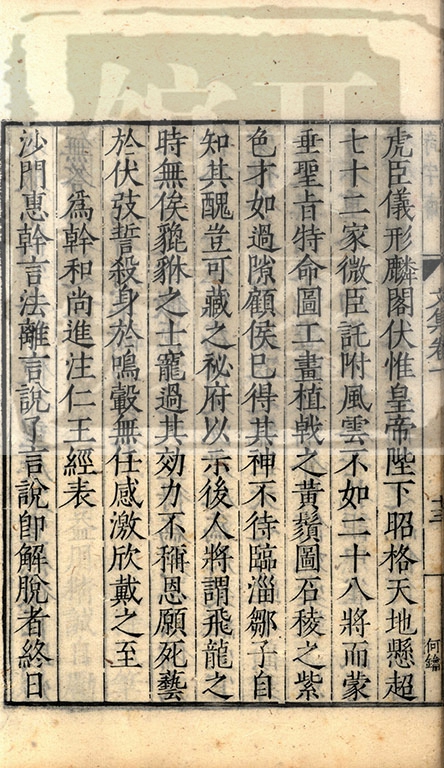 虎臣儀形麟閣伏惟皇帝陛下昭格天地懸超
七十二家微臣託附風雲不如二十八將而蒙
垂聖旨特命圖工畫植戟之黃鬚圖石稜之紫
色才如過隙顧侯已得其神不待臨淄鄒子自
知其醜豈可藏之祕府以示後人將謂飛龍之
時無俟貔貅之士寵過其効力不稱恩願死藝
於伏弢誓殺身於鳴轂無任感激欣戴之至
爲幹和尚進注仁王經表
沙門惠幹言法離言說了言說卽解脫者終日
文集卷一
三
何鑰